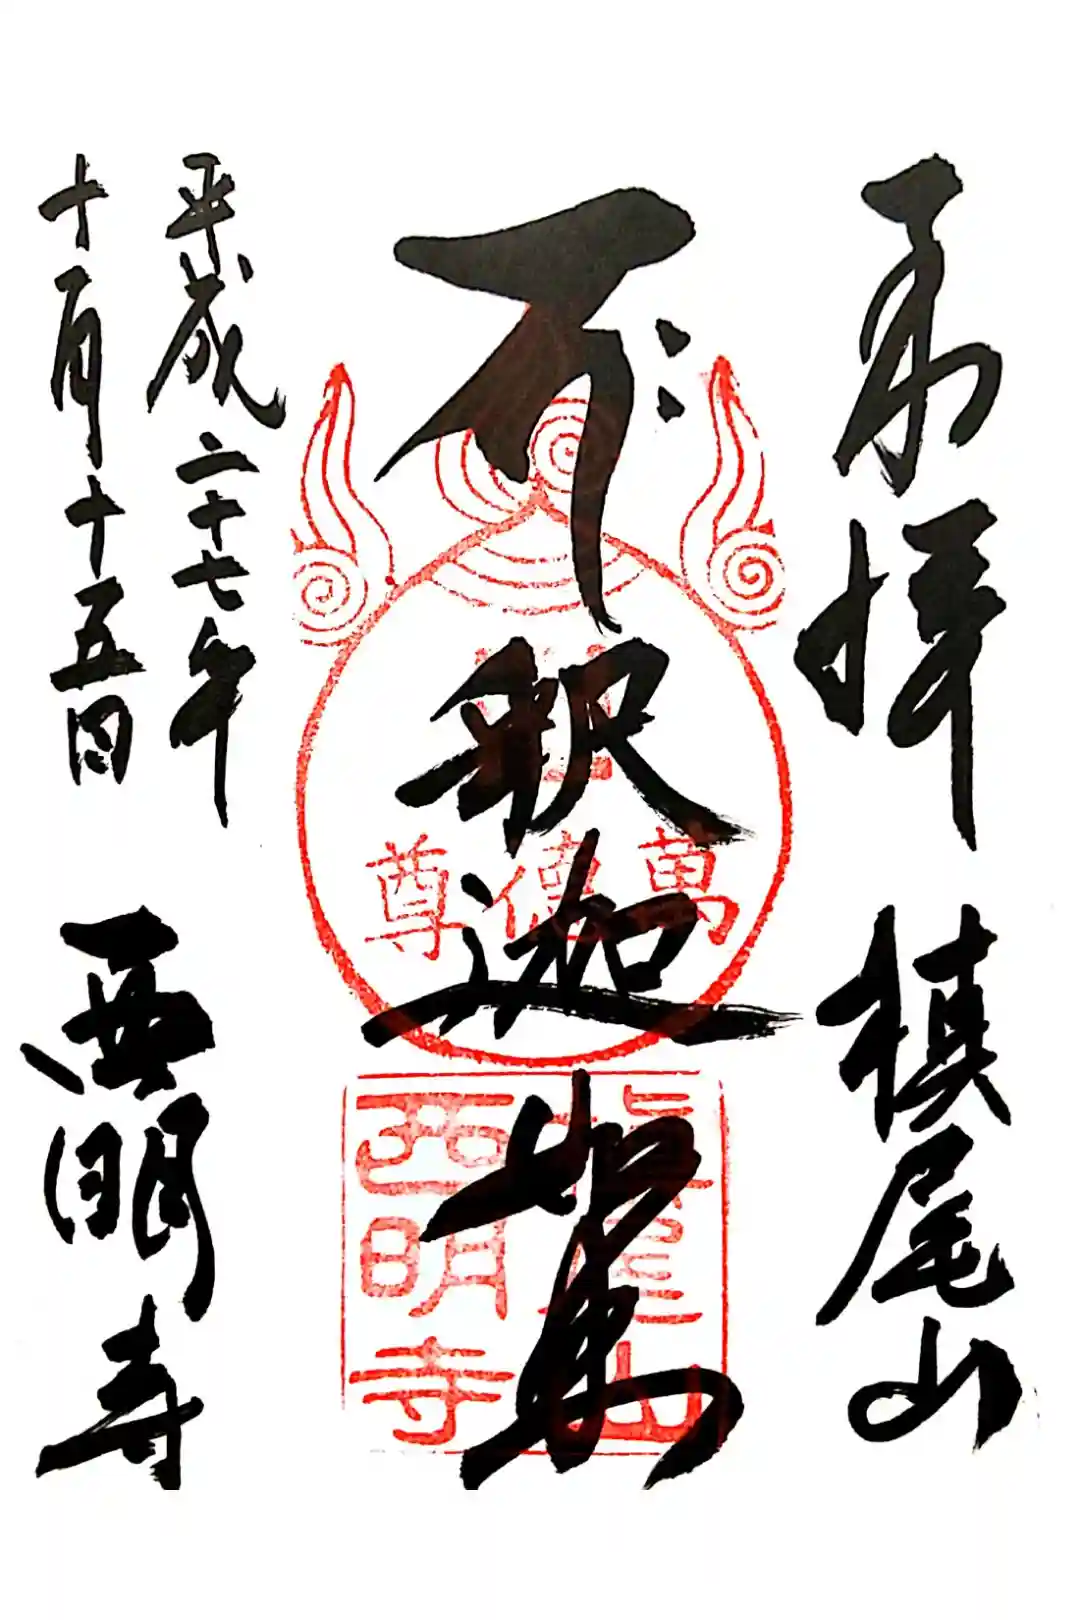 奉拝
槙尾山
釈迦如来
平成二十七年
十月十五日
西明寺
萬德尊
槙尾山
西明寺